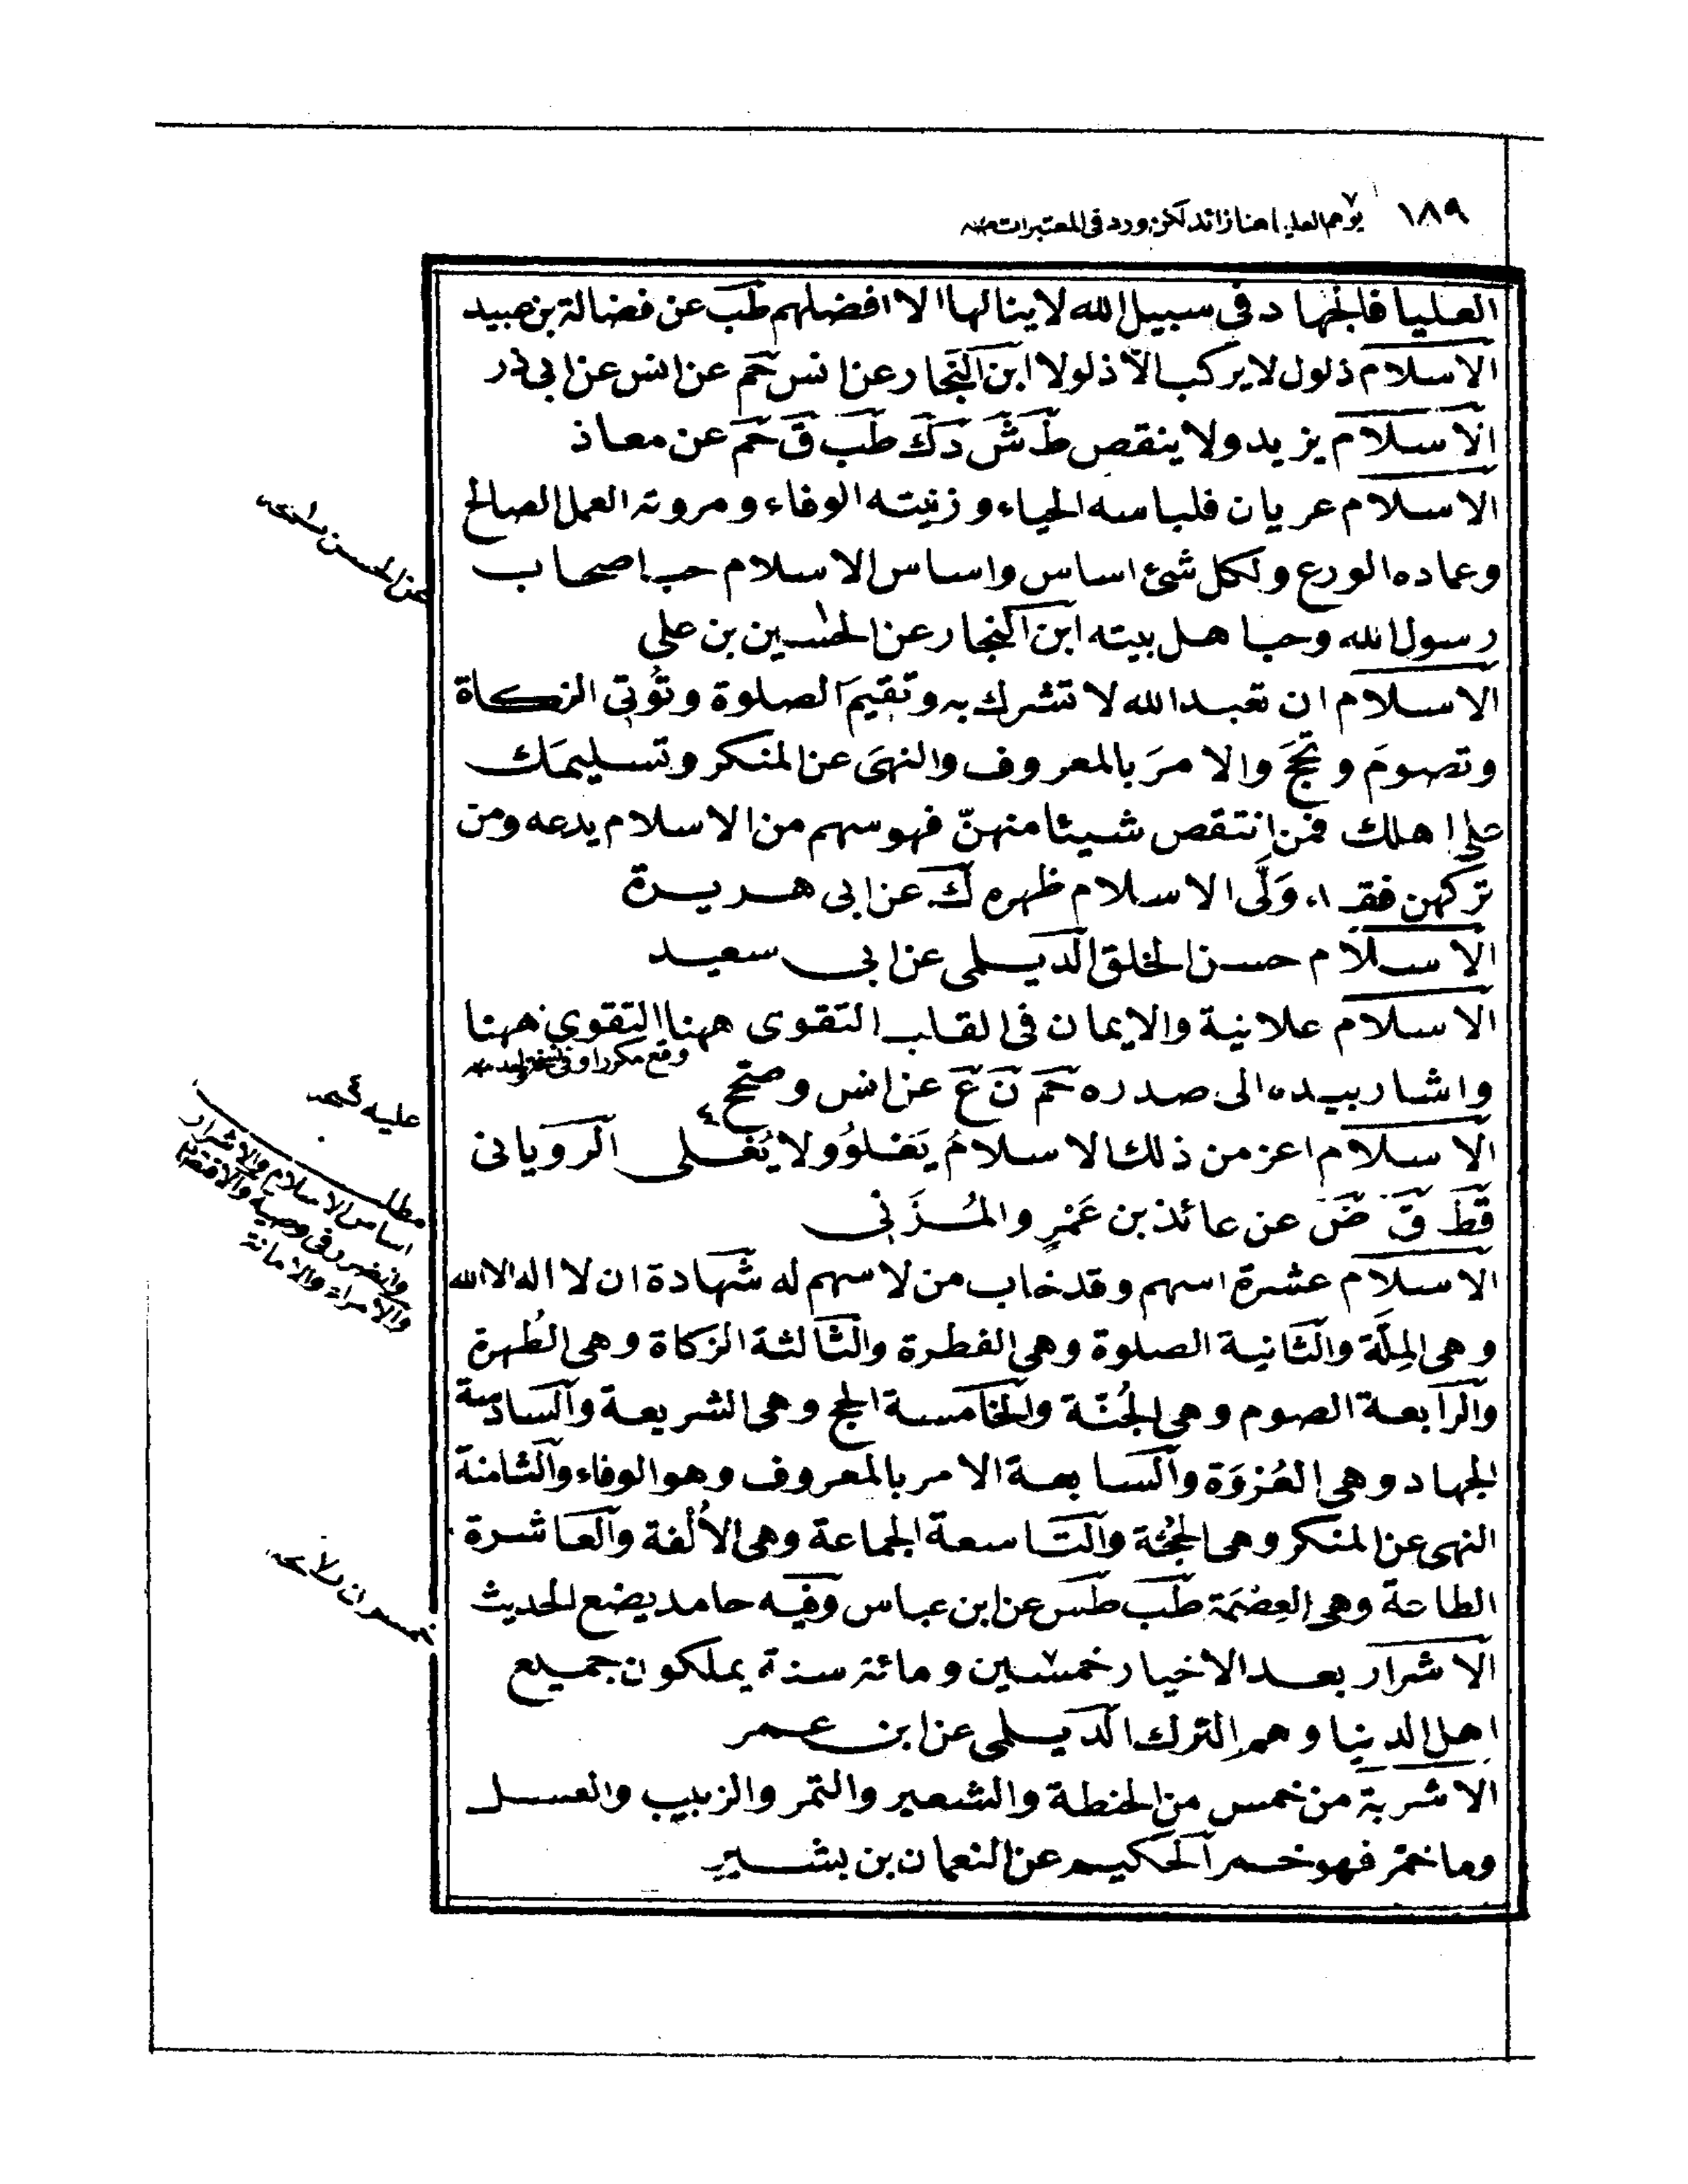 ١٨٩
يوهم العليا هنا زائد لكن ورد في المعتبرات منه
العليا فالجهاد في سبيل الله لا ينالها الا افضلهم طب عن فضالة بن عبيد
الاسلام ذلول لا يركب الا ذلولا ابن النجار عن انس حم عن انس عن ابى ذر
الاسلام يزيد ولا ينقص ط ش د ك طب ق حم عن معاذ
الاسلام عريان فلباسه الحياء وزينته الوفاء ومروته العمل الصالح
وعماده الورع ولكل شئ اساس واساس الاسلام حب اصحاب
رسول الله وحب اهل بيته ابن النجار عن الحسين بن على
عن الحسن نسخه
الاسلام ان تعبد الله لا تشرك به وتقيمَ الصلوة وتُؤتى الزكاة
وتصومَ وتحجَّ والامرَ بالمعروف والنهىَ عن المنكر وتسليمَك
على اهلك فمن انتقص شيئا منهنّ فهو سهم من الاسلام يدعه ومن
تركهن فقد وَلَّى الاسلام ظهره ك عن ابى هريرة
الاسلام حسن الخلق الديلمى عن ابى سعيد
الاسلام علانية والايمان فى القلب التقوى ههنا التقوى ههنا
وقع مكررا وفى نسخة
واشار بيده الى صدره حم ن ع عن انس وصحح
عليه نسخه
الاسلام اعز من ذلك الاسلامُ يَعْلُو ولا يُعْلى الرويانى
قط ق ض عن عائذ بن عَمْرٍو المُزَنى
مطلب
اساس الاسلام والاشرار
والامراء والامانة
الاسلام عشرة اسهم وقد خاب من لا سهم له شهادة ان لا اله الا الله
وهى المِلَّة والثانية الصلوة وهى الفطرة والثالثة الزكاة وهى الطُهرة
والرابعة الصوم وهى الجُنّة والخامسة الحج وهى الشريعة والسادسة
الجهاد وهى الغَزوَة والسابعة الامر بالمعروف وهو الوفاء والثامنة
النهى عن المنكر وهى الحُجّة والتاسعة الجماعة وهى الأُلْفة والعاشرة
الطاعة وهى العِصْمَة طب طس عن ابن عباس وفيه حامد يضع الحديث
الاشرار بعد الاخيار خمسين ومائة سنة يملكون جميع
اهل الدنيا وهم الترك الديلمى عن ابن عمر
الاشربة من خمس من الحنطة والشعير والتمر والزبيب والعسل
وما خمّر فهو خمر الحكيم عن النعمان بن بشير